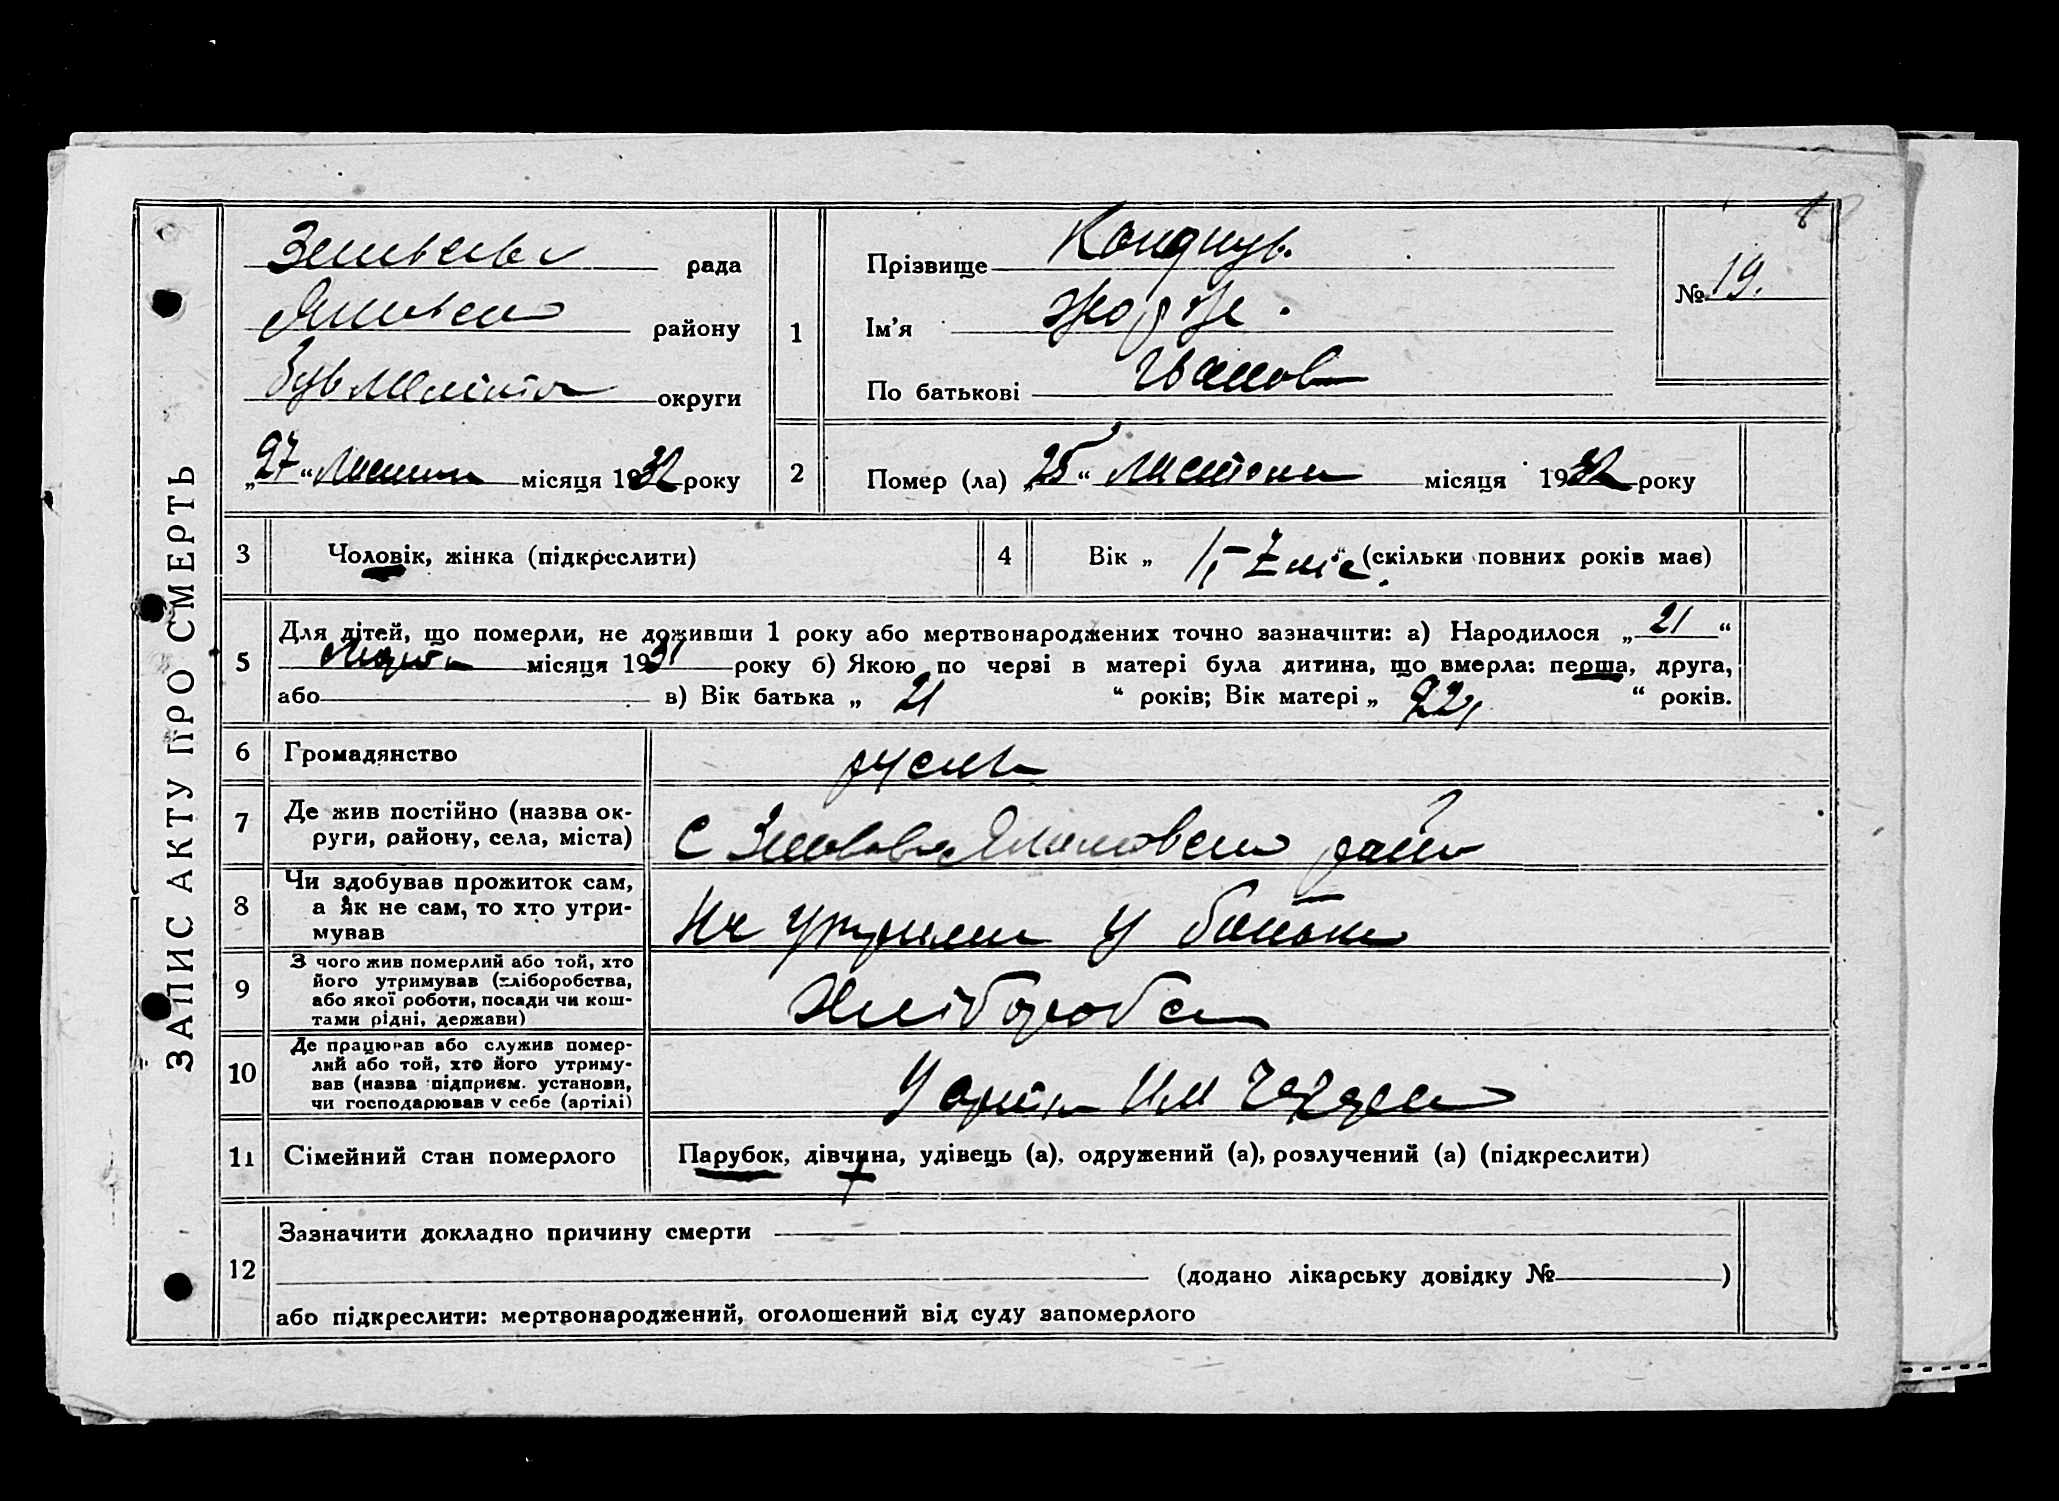 ЗАПИС АКТУ ПРО СМЕРТЬ
рада
району
округи
„27“ місяця 1932 року
1
Прізвище
Ім'я Жорж.
По батькові Іванов
№ 19.
2
Помер (ла) „25“ листопа місяця 1932 року
3
Чоловік, жінка (підкреслити)
4
Вік „ 1, - 7 міс. “ (скільки повних років має)
5
Для дітей, що померли, не доживши 1 року або мертвонароджених точно зазначити: а) Народилося „ 21 “
місяця 1931 року б) Якою по черві в матері була дитина, що вмерла: перша, друга,
або в) Вік батька „ 21 “ років; Вік матері „ 22, “ років.
6
Громадянство
7
Де жив постійно (назва ок-
руги, району, села, міста)
С райо
8
Чи здобував прожиток сам,
а як не сам, то хто утри-
мував
На у батька
9
З чого жив померлий або той, хто
його утримував (хліборобства,
або якої роботи, посади чи кош-
тами рідні, держави)
Хлібороб
10
Де працював або служив помер-
лий або той, хто його утриму-
вав (назва підприєм. установи,
чи господарював у себе (артілі)
У артіл Им
11
Сімейний стан померлого
Парубок, дівчина, удівець (а), одружений (а), розлучений (а) (підкреслити)
12
Зазначити докладно причину смерти
(додано лікарську довідку № )
або підкреслити: мертвонароджений, оголошений від суду запомерлого